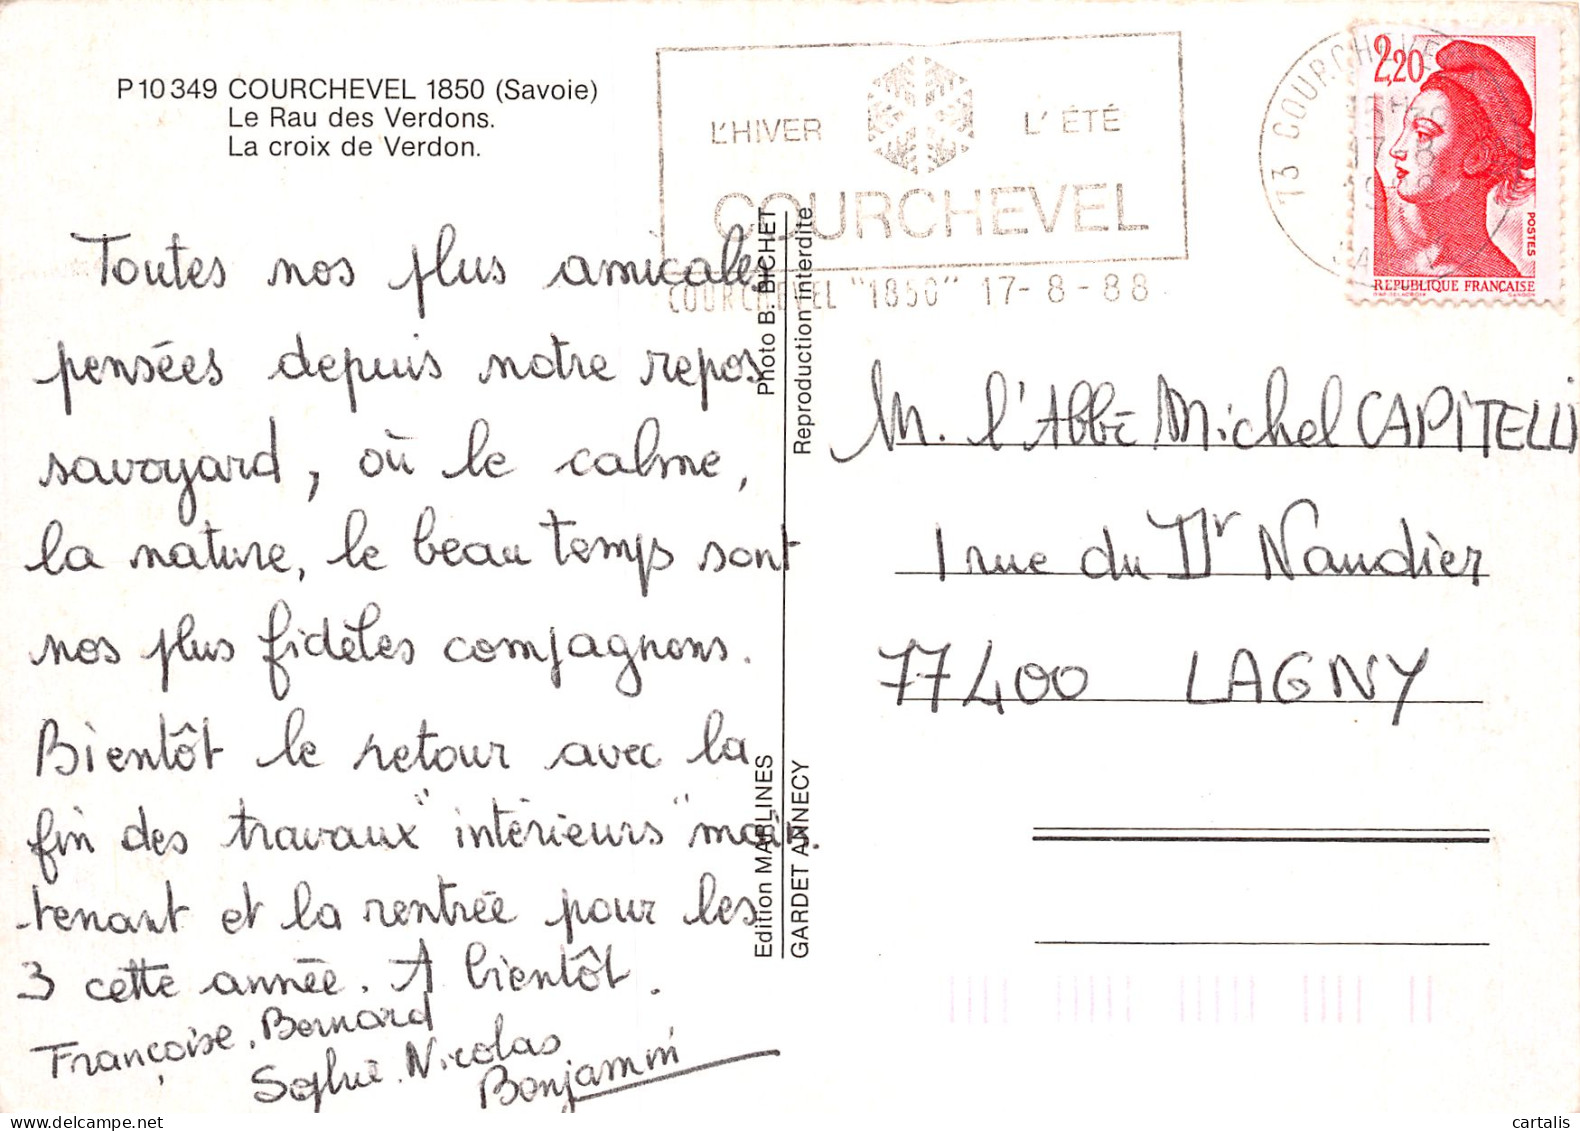 P10349 COURCHEVEL 1850 (Savoie)
Le Rau des Verdons.
La croix de Verdon.
L'HIVER L'ÉTÉ
COURCHEVEL
COURCHEVEL "1850" 17-8-88
73 COURCHEVEL
2,20
POSTES
REPUBLIQUE FRANÇAISE
Toutes nos plus amicales
pensées depuis notre repos
savoyard, où le calme,
la nature, le beau temps sont
nos plus fidèles compagnons.
Bientôt le retour avec la
fin des travaux "intérieurs" main.
tenant et la rentrée pour les
3 cette année. A bientôt.
Françoise. Bernard
Sophie. Nicolas
Benjamin
Photo B. BICHET
Reproduction interdite
Edition MABLINES
GARDET ANNECY
M. l'Abbé Michel CAPITELLI
1 rue du Dr Naudier
77400 LAGNY
delcampe.net
cartalis